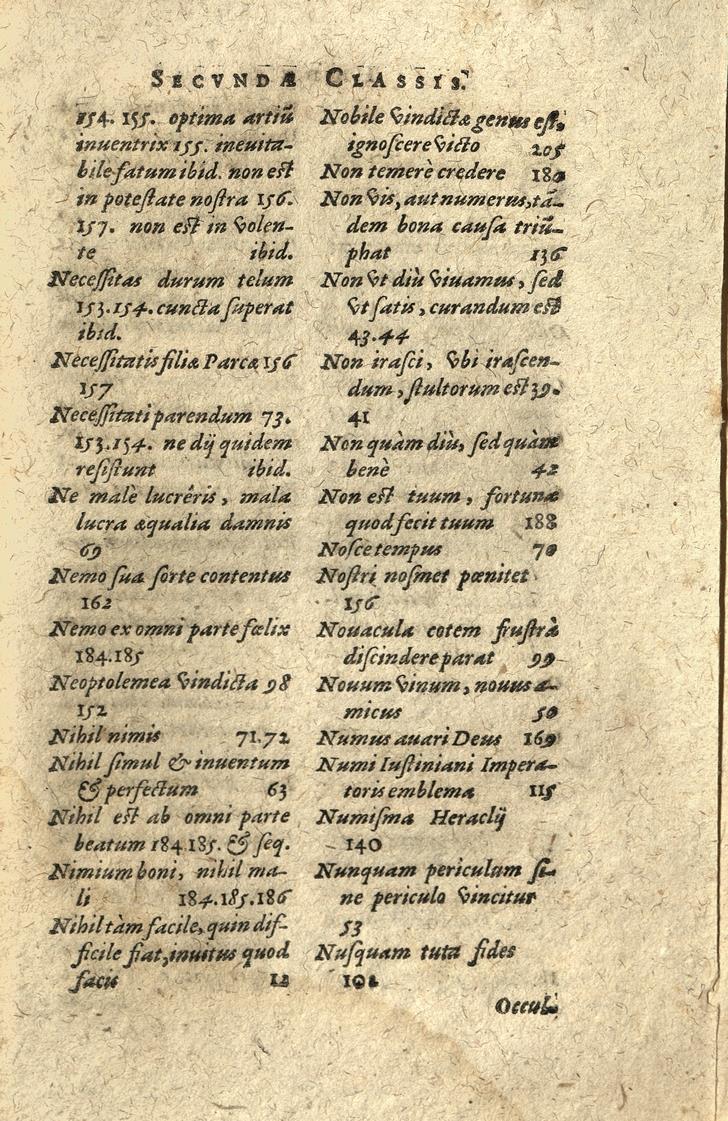 SECVNDÆ CLASSIS.
154. 155. optima artiũ
inuentrix 155. ineuita-
bile fatum ibid. non est
in potestate nostra 156.
157. non est in volen-
te ibid.
Necessitas durum telum
153.154. cuncta superat
ibid.
Necessitatis filiæ Parcæ 156
157
Necessitati parendum 73.
153.154. ne dij quidem
resistunt ibid.
Ne malè lucrêris, mala
lucra æqualia damnis
69
Nemo sua sorte contentus
162
Nemo ex omni parte fœlix
184.185
Neoptolemea vindicta 98
152
Nihil nimis 71.72
Nihil simul & inuentum
& perfectum 63
Nihil est ab omni parte
beatum 184.185. & seq.
Nimium boni, nihil ma-
li 184.185.186
Nihil tàm facile, quin dif-
ficile fiat, inuitus quod
facis 12
Nobile vindictæ genus est,
ignoscere victo 205
Non temerè credere 180
Non vis, aut numerus, tã-
dem bona causa triũ-
phat 136
Non vt diù viuamus, sed
vt satis, curandum est
43.44
Non irasci, vbi irascen-
dum, stultorum est 39.
41
Non quàm diù, sed quàm
benè 42
Non est tuum, fortuna
quod fecit tuum 188
Nosce tempus 70
Nostri nosmet pœnitet
156
Nouacula cotem frustrà
discindere parat 99
Nouum vinum, nouus a-
micus 50
Numus auari Deus 169
Numi Iustiniani Impera-
toris emblema 115
Numisma Heraclij
140
Nunquam periculum si-
ne periculo vincitur
53
Nusquam tuta fides
102
Occul-